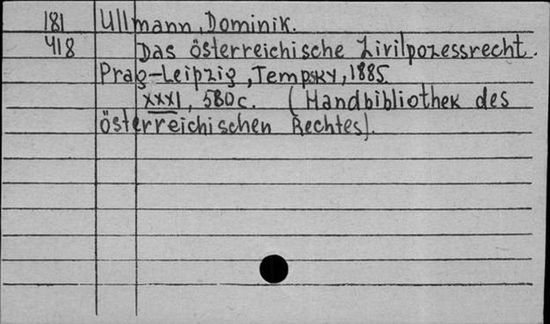 181 Ullmann, Dominik.
418 Das österreichische Zivilpozessrecht.
Prag-Leipzig, Tempsky, 1885
XXXI, 580 c. (Handbibliothek des
österreichischen Rechtes).